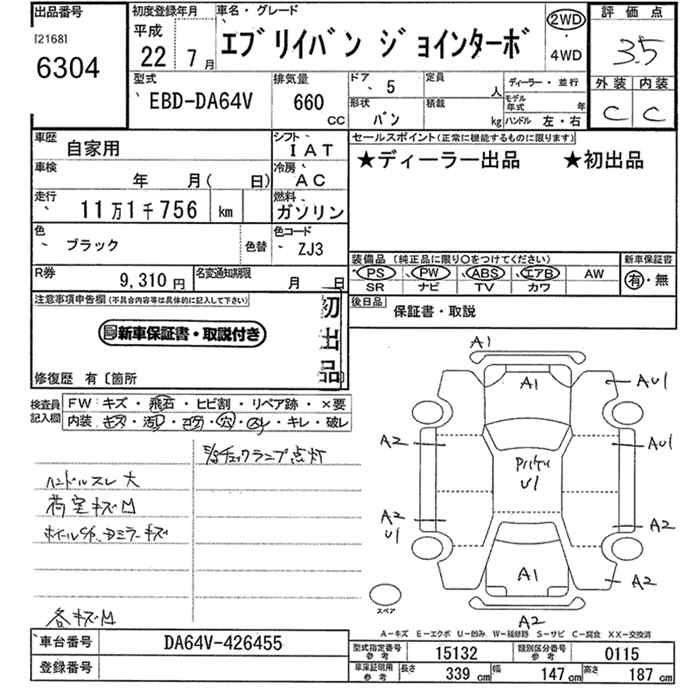 出品番号
[2168]
6304
初度登録年月
平成
22 7月
車名・グレード
エブリイバン ジョインターボ
2WD
・
4WD
評価点
3.5
外装 内装
C C
型式
EBD-DA64V
排気量
660 CC
ドア 5
定員 人
形状 バン
積載 kg
ディーラー・並行
モデル年式 年
ハンドル 左・右
車歴
自家用
シフト
IAT
車検
年 月( 日)
冷房
AC
走行
11万1千756 km
燃料
ガソリン
色
ブラック
色替
色コード
ZJ3
セールスポイント(正常に機能するものに限ります)
★ディーラー出品 ★初出品
装備品 (純正品に限り○をつけてください)
PS PW ABS エアB AW
SR ナビ TV カワ
新車保証書
有・無
R券
9,310円
名変通知期限
月 日
後日品
保証書・取説
注意事項申告欄(不具合内容等は具体的に記入して下さい)
新車保証書・取説付き
初出品
修復歴 有〔箇所
検査員記入欄
FW キズ・飛石・ヒビ割・リペア跡・×要
内装 キズ・汚レ・コゲ・穴・スレ・キレ・破レ
チェックランプ点灯
ハンドルスレ 大
荷室キズ凹
ミラーキズ
各キズ凹
A1
A1
AU1
A2
AU1
U1
A2
U1
A2
A1
A2
A2
スペア
A-キズ E-エクボ U-凹み W-補修跡 S-サビ C-腐食 XX-交換済
車台番号
DA64V-426455
登録番号
型式指定番号 参考
15132
類別区分番号 参考
0115
車庫証明用 参考
長さ 339 cm 幅 147 cm 高さ 187 cm